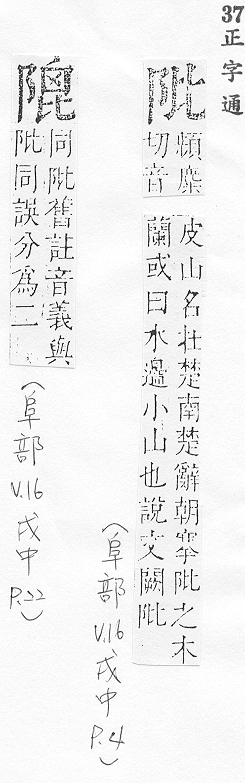 37 正字通
阰
頻糜
切音
皮山名在楚南楚辭朝搴阰之木
蘭或曰水邊小山也說文闕阰
(阜部 V.16 戌中 P.4)
同阰舊註音義與
阰同誤分為二
(阜部 V.16 戌中 P.22)